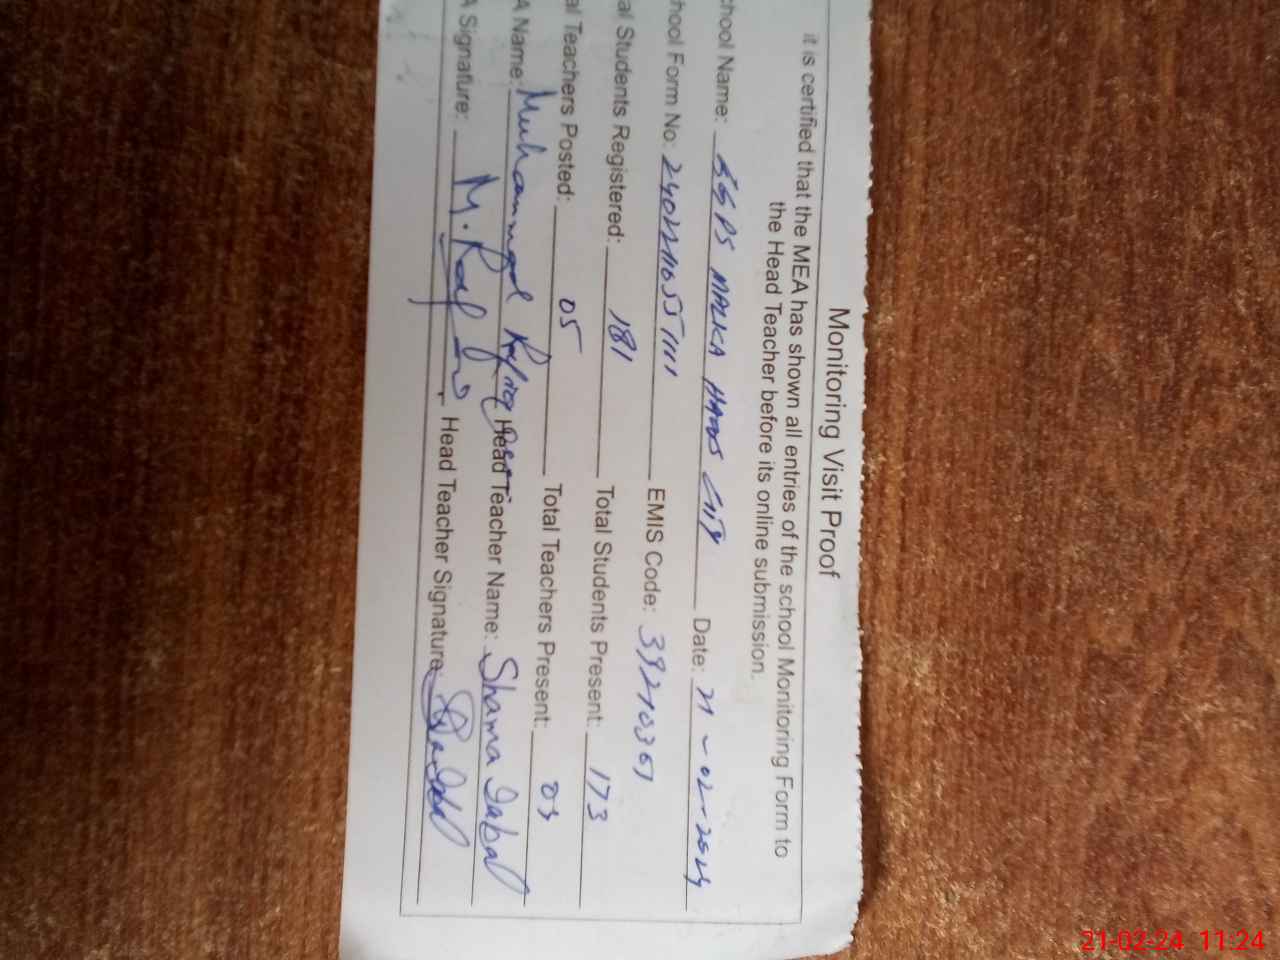 Monitoring Visit Proof
it is certified that the MEA has shown all entries of the school Monitoring Form to
the Head Teacher before its online submission.
chool Name: GGPS MALKA HANS CITY Date: 21-02-2024
hool Form No: EMIS Code: 39210361
al Students Registered: 181 Total Students Present: 173
al Teachers Posted: 05 Total Teachers Present: 03
A Name: Muhammad Rafiq Head Teacher Name: Shama Iqbal
A Signature: M. Head Teacher Signature:
21-02-24 11:24